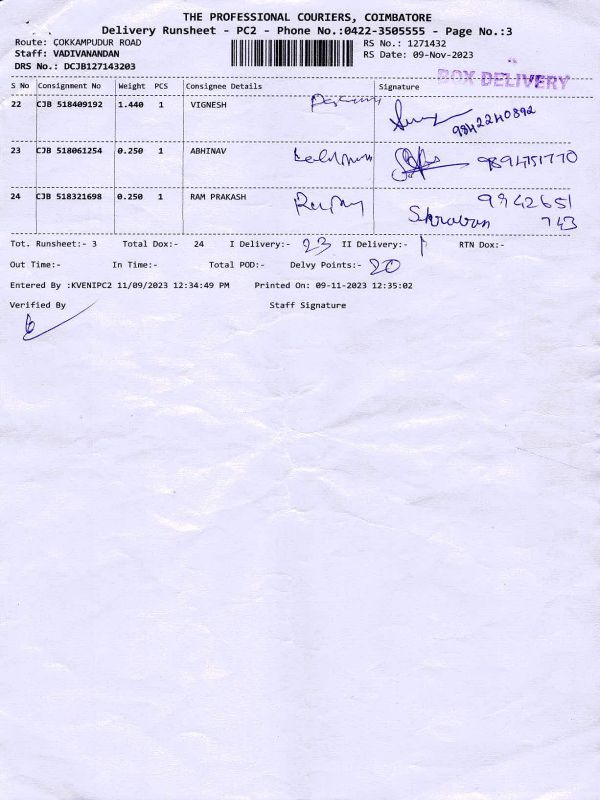 THE PROFESSIONAL COURIERS, COIMBATORE
Delivery Runsheet - PC2 - Phone No.:0422-3505555 - Page No.:3
Route: COKKAMPUDUR ROAD RS No.: 1271432
Staff: VADIVANANDAN RS Date: 09-Nov-2023
DRS No.: DCJB127143203
BOX DELIVERY
S No Consignment No Weight PCS Consignee Details Signature
22 CJB 518409192 1.440 1 VIGNESH 9842240892
23 CJB 518061254 0.250 1 ABHINAV 9894751770
24 CJB 518321698 0.250 1 RAM PRAKASH 9942651
743
Tot. Runsheet:- 3 Total Dox:- 24 I Delivery:- 23 II Delivery:- 1 RTN Dox:-
Out Time:- In Time:- Total POD:- Delvy Points:- 20
Entered By :KVENIPC2 11/09/2023 12:34:49 PM Printed On: 09-11-2023 12:35:02
Verified By Staff Signature